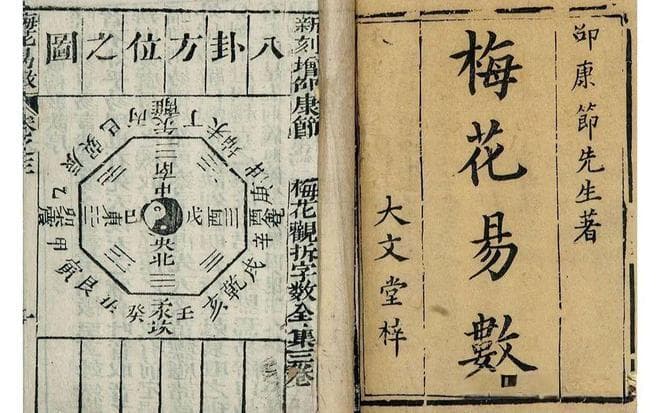 邵康節先生著
梅花易數
大文堂梓
新刻增邵康節
梅花觀拆字數全集三卷
八卦方位之圖
巳
丙
離
丁
未
巽
辰
南
中
乙
震
甲
東
巳
戊
酉
庚
辛
央
北
寅
艮
癸
坎
壬
亥
乾
戌